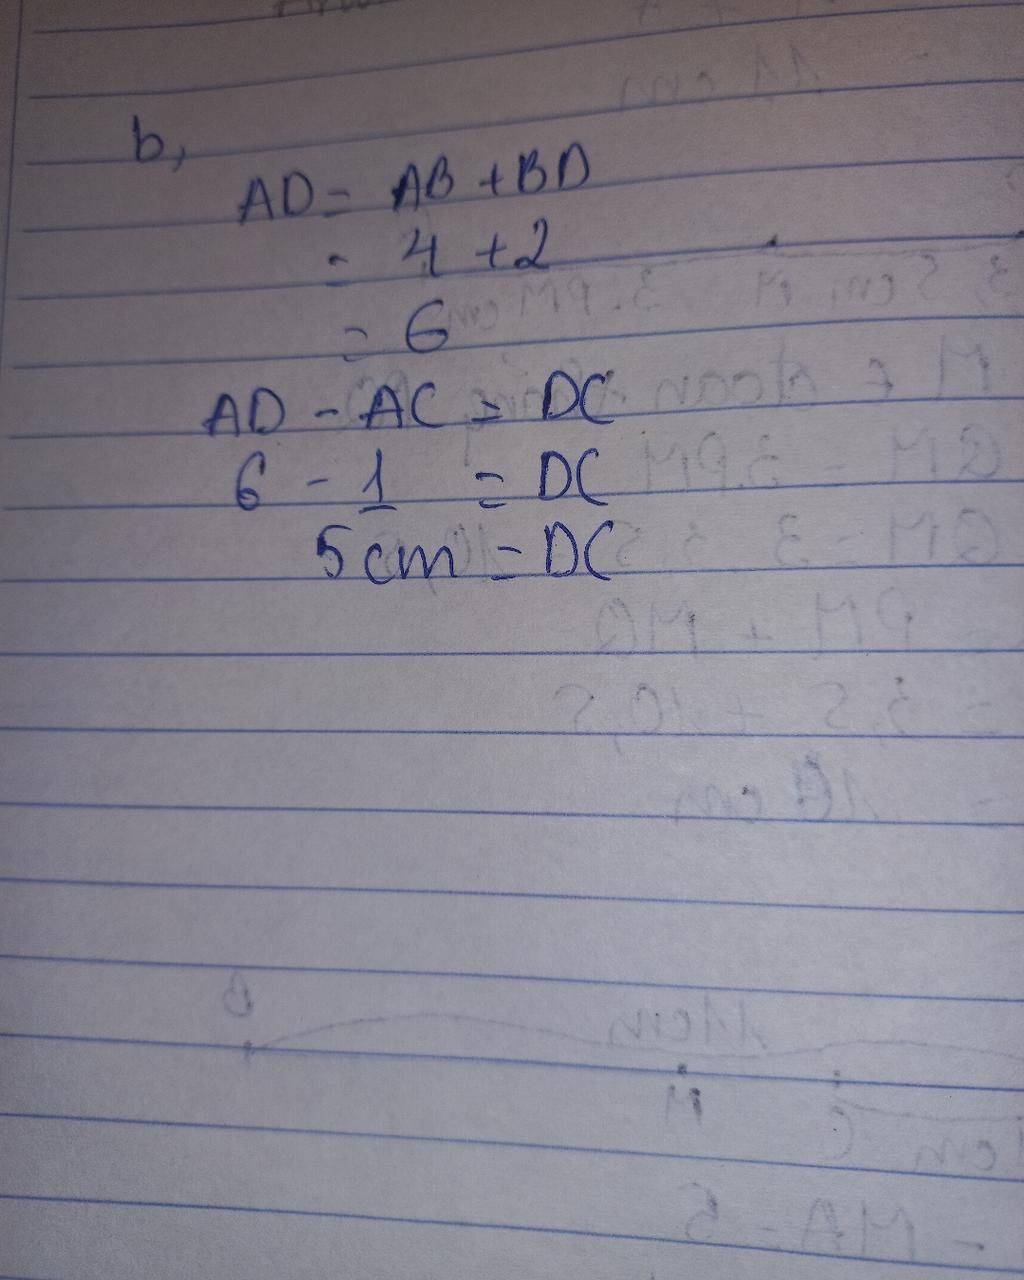 b,
AD = AB + BD
= 4 + 2
= 6
AD - AC = DC
6 - 1 = DC
5cm = DC